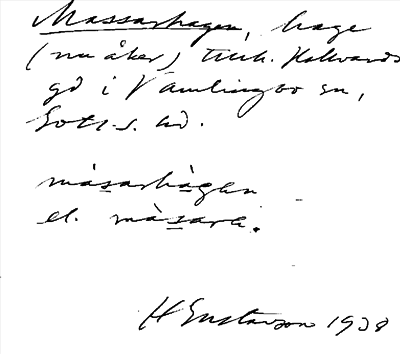 Massarhagen, hage
(nu åker) tillh. Hallvards
gd i Vamlingbo sn,
Gotl. s. hd.
màsarhàgen
el. màsara.
H Gustavson 1938